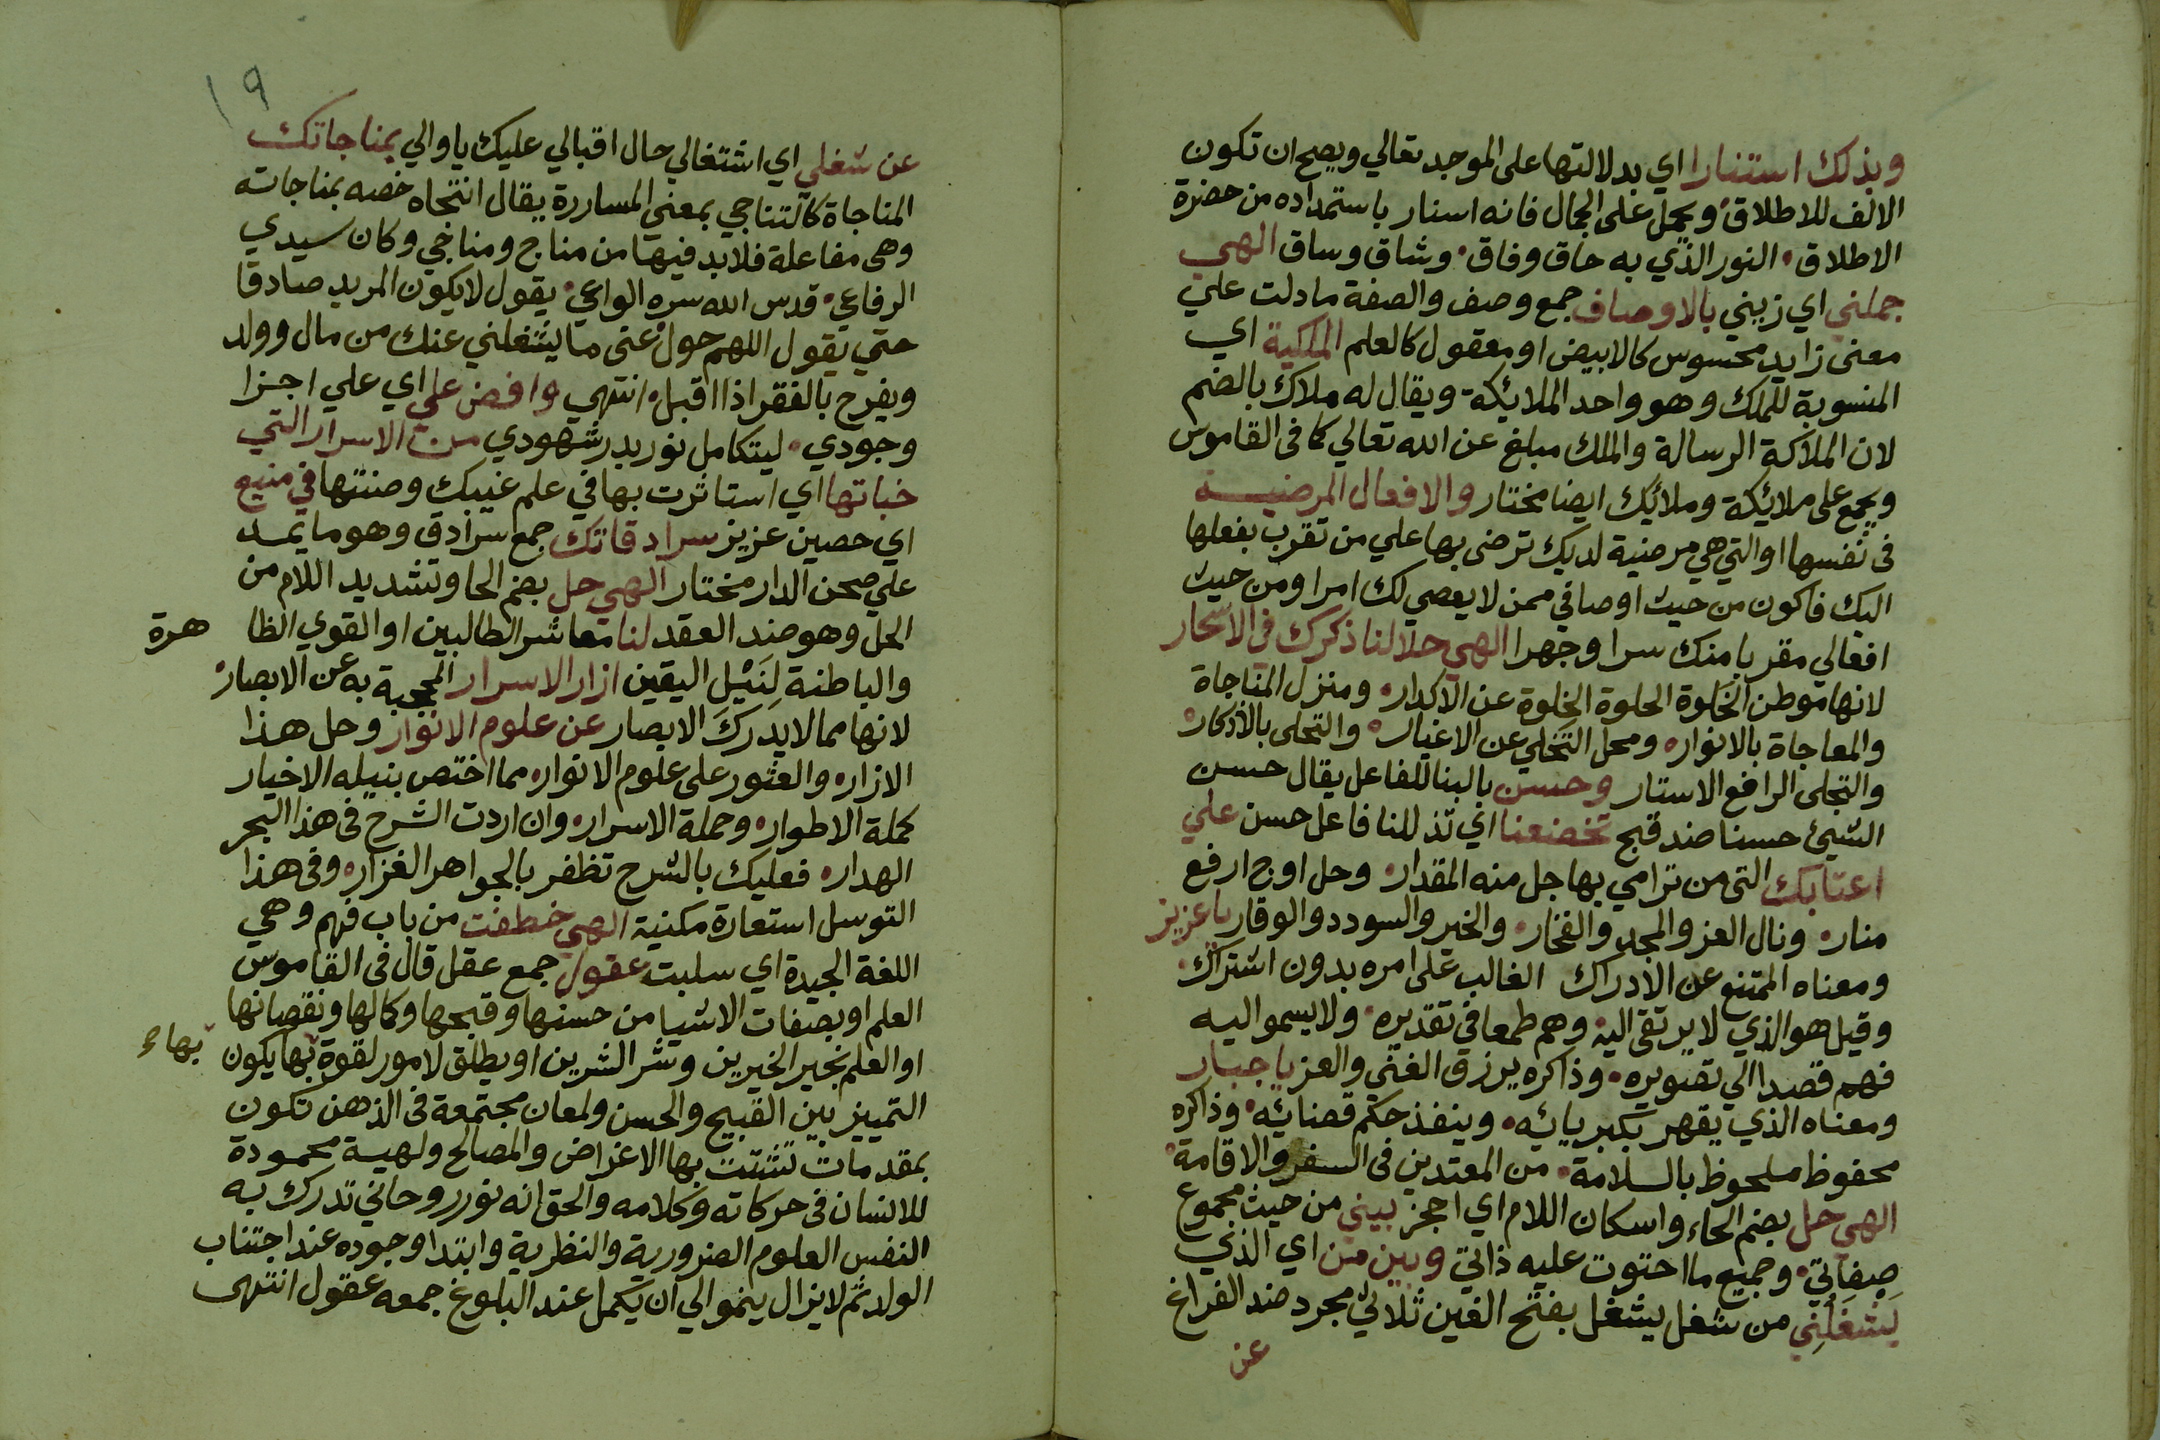 وبذلك استنارا اي بدلالتها على الموجد تعالي ويصح ان تكون
الالف للاطلاق ويحمل على الجمال فانه استنار باستمداده من حضرة
الاطلاق النور الذي به حاق وفاق وشاق وساق الهي
جملني اي زيني بالاوصاف جمع وصف والصفة ما دلت علي
معنى زايد محسوس كالابيض او معقول كالعلم الملكية اي
المنسوبة للملك وهو واحد الملائكة ويقال له ملاك بالضم
لان الملاكة الرسالة والملك مبلغ عن الله تعالي كما في القاموس
ويجمع على ملائكة وملائك ايضا مختار والافعال المرضية
في نفسها او التي هي مرضية لديك ترضى بها علي من تقرب بفعلها
اليك فاكون من حيث اوصافي ممن لا يعصي لك امرا ومن حيث
افعالي مقربا منك سرا وجهرا الهي حلا لنا ذكرك في الاسحار
لانها موطن الخلوة الحلوة الخلوة عن الاكدار ومنزل المناجاة
والمعاجاة بالانوار ومحل التخلي عن الاغيار والتحلى بالاذكار
والتجلى الرافع الاستار وحسن بالبنا للفاعل يقال حسن
الشيئ حسنا ضد قبح تخضعنا اي تذللنا فاعل حسن علي
اعتابك التى من ترامي بها جل منه المقدار وحل اوج ارفع
منار ونال العز والمجد والفخار والخير والسودد والوقار يا عزيز
ومعناه الممتنع عن الادراك الغالب على امره بدون اشتراك
وقيل هو الذي لا يرتقى اليه وهم طمعا في تقديره ولا يسموا اليه
فهم قصدا الي تصويره وذاكره يرزق الغني والعز يا جبار
ومعناه الذي يقهر بكبريائه وينفذ حكم قضائه وذاكره
محفوظ ملحوظ بالسلامة من المعتدين في السفر والاقامة
الهي حل بضم الحاء واسكان اللام اي احجز بيني من حيث مجموع
صفاتي وجميع ما احتوت عليه ذاتي وبين من اي الذي
يشغلني من شغل يشغل بفتح الغين ثلاثي مجرد ضد الفراغ
عن
١٩
عن شغلي اي اشتغالي حال اقبالي عليك يا والي بمناجاتك
المناجاة كالتناجي بمعنى المساررة يقال انتجاه خصه بمناجاته
وهى مفاعلة فلا بد فيها من مناج ومناجي وكان سيدي
الرفاعي قدس الله سره الواعي يقول لا يكون المريد صادقا
حتي يقول اللهم حول عنى ما يشغلني عنك من مال وولد
ويفرح بالفقر اذا اقبل انتهي وافض علي اي علي اجزا
وجودي ليتكامل نور بدر شهودي من الاسرار التي
خباتها اي استاثرت بها في علم غيبك وصنتها في منيع
اي حصين عزيز سرادقاتك جمع سرادق وهو ما يمد
علي صحن الدار مختار الهي حل بضم الحا وتشديد اللام من
الحل وهو ضد العقد لنا معاشر الطالبين او القوي الظا هرة
والباطنة لنيل اليقين ازار الاسرار المحجبة به عن الابصار
لانها مما لا يدرك الابصار عن علوم الانوار وحل هذا
الازار والعثور على علوم الانوار مما اختص بنيله الاخيار
كملة الاطوار وحملة الاسرار وان اردت الشرح في هذا البحر
الهدار فعليك بالشرح تظفر بالجواهر الغزار وفى هذا
التوسل استعارة مكنية الهي خطفت من باب فهم وهي
اللغة الجيدة اي سلبت عقول جمع عقل قال في القاموس
العلم او بصفات الاشيا من حسنها وقبحها وكمالها ونقصانها
او العلم بخير الخيرين وشر الشرين او يطلق لامور لقوة بها يكون
بهاء
التمييز بين القبيح والحسن ولمعان مجتمعة في الذهن تكون
بمقدمات تشتت بها الاغراض والمصالح ولهيية محمودة
للانسان في حركاته وكلامه والحق انه نور روحاني تدرك به
النفس العلوم الضرورية والنظرية وابتدا وجوده عند اجتناب
الولد ثم لا يزال ينمو الي ان يكمل عند البلوغ جمعه عقول انتهى